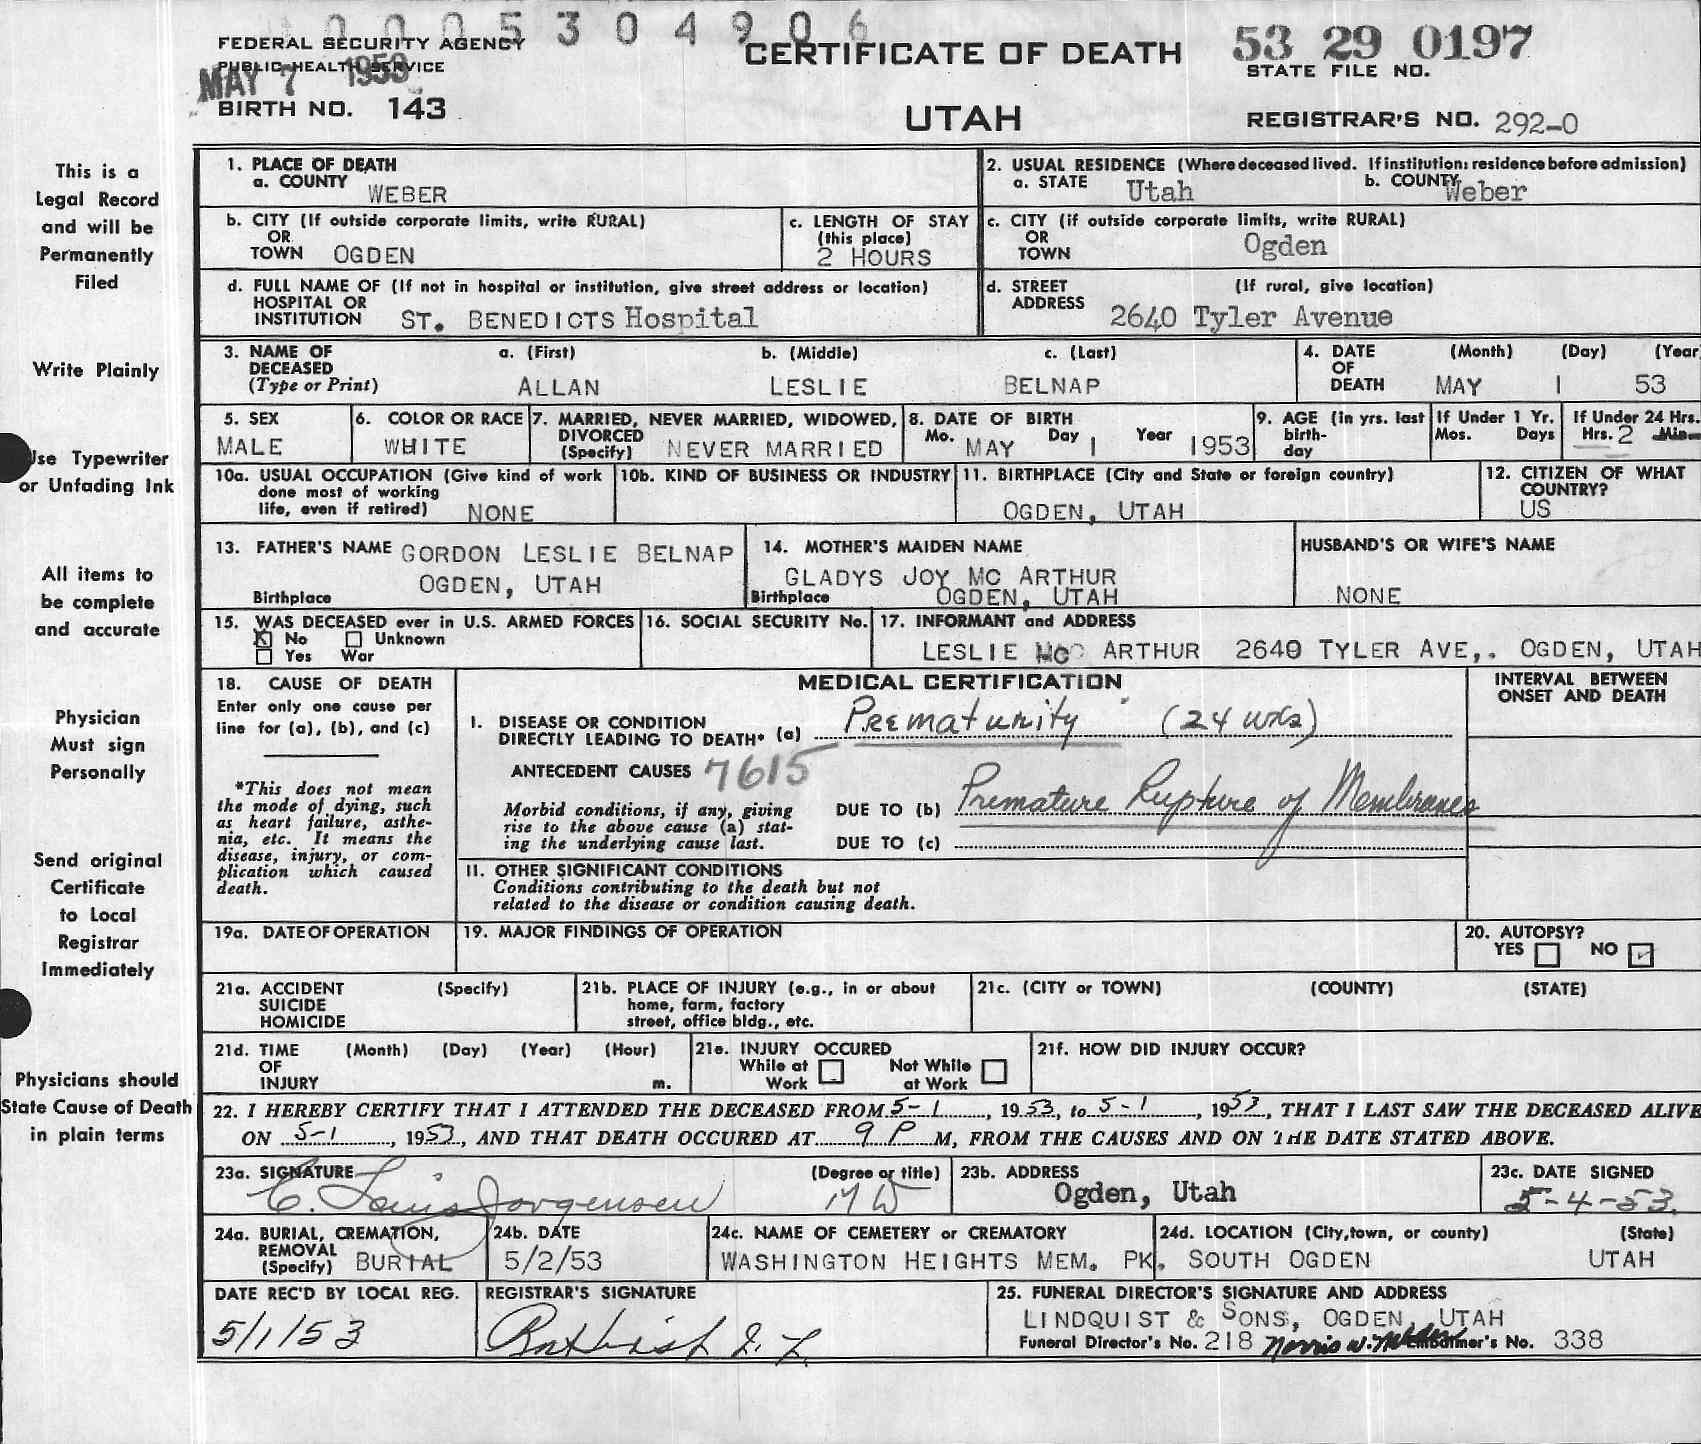 0005304906
FEDERAL SECURITY AGENCY
PUBLIC HEALTH SERVICE
MAY 7 1953
BIRTH NO. 143
CERTIFICATE OF DEATH
UTAH
53 29 0197
STATE FILE NO.
REGISTRAR'S NO. 292-0
This is a
Legal Record
and will be
Permanently
Filed
Write Plainly
Use Typewriter
or Unfading Ink
All items to
be complete
and accurate
Physician
Must sign
Personally
Send original
Certificate
to Local
Registrar
Immediately
Physicians should
State Cause of Death
in plain terms
1. PLACE OF DEATH
a. COUNTY WEBER
2. USUAL RESIDENCE (Where deceased lived. If institution: residence before admission)
a. STATE Utah b. COUNTY Weber
b. CITY (If outside corporate limits, write RURAL)
OR
TOWN OGDEN
c. LENGTH OF STAY
(this place)
2 HOURS
c. CITY (if outside corporate limits, write RURAL)
OR
TOWN Ogden
d. FULL NAME OF (If not in hospital or institution, give street address or location)
HOSPITAL OR
INSTITUTION ST. BENEDICTS Hospital
d. STREET (If rural, give location)
ADDRESS 2640 Tyler Avenue
3. NAME OF a. (First) b. (Middle) c. (Last)
DECEASED
(Type or Print) ALLAN LESLIE BELNAP
4. DATE (Month) (Day) (Year
OF
DEATH MAY 1 53
5. SEX
MALE
6. COLOR OR RACE
WHITE
7. MARRIED, NEVER MARRIED, WIDOWED,
DIVORCED
(Specify) NEVER MARRIED
8. DATE OF BIRTH
Mo. MAY Day 1 Year 1953
9. AGE (in yrs. last
birth-
day
If Under 1 Yr.
Mos. Days
If Under 24 Hrs.
Hrs. 2 Min.
10a. USUAL OCCUPATION (Give kind of work
done most of working
life, even if retired) NONE
10b. KIND OF BUSINESS OR INDUSTRY
11. BIRTHPLACE (City and State or foreign country)
OGDEN, UTAH
12. CITIZEN OF WHAT
COUNTRY?
US
13. FATHER'S NAME GORDON LESLIE BELNAP
OGDEN, UTAH
Birthplace
14. MOTHER'S MAIDEN NAME
GLADYS JOY MC ARTHUR
Birthplace OGDEN, UTAH
HUSBAND'S OR WIFE'S NAME
NONE
15. WAS DECEASED ever in U.S. ARMED FORCES
X No Unknown
Yes War
16. SOCIAL SECURITY No.
17. INFORMANT and ADDRESS
LESLIE MC ARTHUR 2640 TYLER AVE,. OGDEN, UTAH
18. CAUSE OF DEATH
Enter only one cause per
line for (a), (b), and (c)
*This does not mean
the mode of dying, such
as heart failure, asthe-
nia, etc. It means the
disease, injury, or com-
plication which caused
death.
MEDICAL CERTIFICATION
INTERVAL BETWEEN
ONSET AND DEATH
I. DISEASE OR CONDITION
DIRECTLY LEADING TO DEATH* (a) Prematurity (24 wks)
ANTECEDENT CAUSES 7615
Morbid conditions, if any, giving
rise to the above cause (a) stat-
ing the underlying cause last.
DUE TO (b) Premature Rupture of Membranes
DUE TO (c)
11. OTHER SIGNIFICANT CONDITIONS
Conditions contributing to the death but not
related to the disease or condition causing death.
19a. DATE OF OPERATION
19. MAJOR FINDINGS OF OPERATION
20. AUTOPSY?
YES NO ✓
21a. ACCIDENT (Specify)
SUICIDE
HOMICIDE
21b. PLACE OF INJURY (e.g., in or about
home, farm, factory
street, office bldg., etc.
21c. (CITY or TOWN) (COUNTY) (STATE)
21d. TIME (Month) (Day) (Year) (Hour)
OF
INJURY m.
21e. INJURY OCCURED
While at Not While
Work at Work
21f. HOW DID INJURY OCCUR?
22. I HEREBY CERTIFY THAT I ATTENDED THE DECEASED FROM 5-1, 1953, to 5-1, 1953, THAT I LAST SAW THE DECEASED ALIVE
ON 5-1, 1953, AND THAT DEATH OCCURED AT 9 P M, FROM THE CAUSES AND ON THE DATE STATED ABOVE.
23a. SIGNATURE (Degree or title)
C. Louis Jorgensen MD
23b. ADDRESS
Ogden, Utah
23c. DATE SIGNED
5-4-53
24a. BURIAL, CREMATION,
REMOVAL
(Specify) BURIAL
24b. DATE
5/2/53
24c. NAME OF CEMETERY or CREMATORY
WASHINGTON HEIGHTS MEM. PK.
24d. LOCATION (City, town, or county) (State)
SOUTH OGDEN UTAH
DATE REC'D BY LOCAL REG.
5/1/53
REGISTRAR'S SIGNATURE
25. FUNERAL DIRECTOR'S SIGNATURE AND ADDRESS
LINDQUIST & SONS, OGDEN, UTAH
Funeral Director's No. 218 Norris W. Embalmer's No. 338